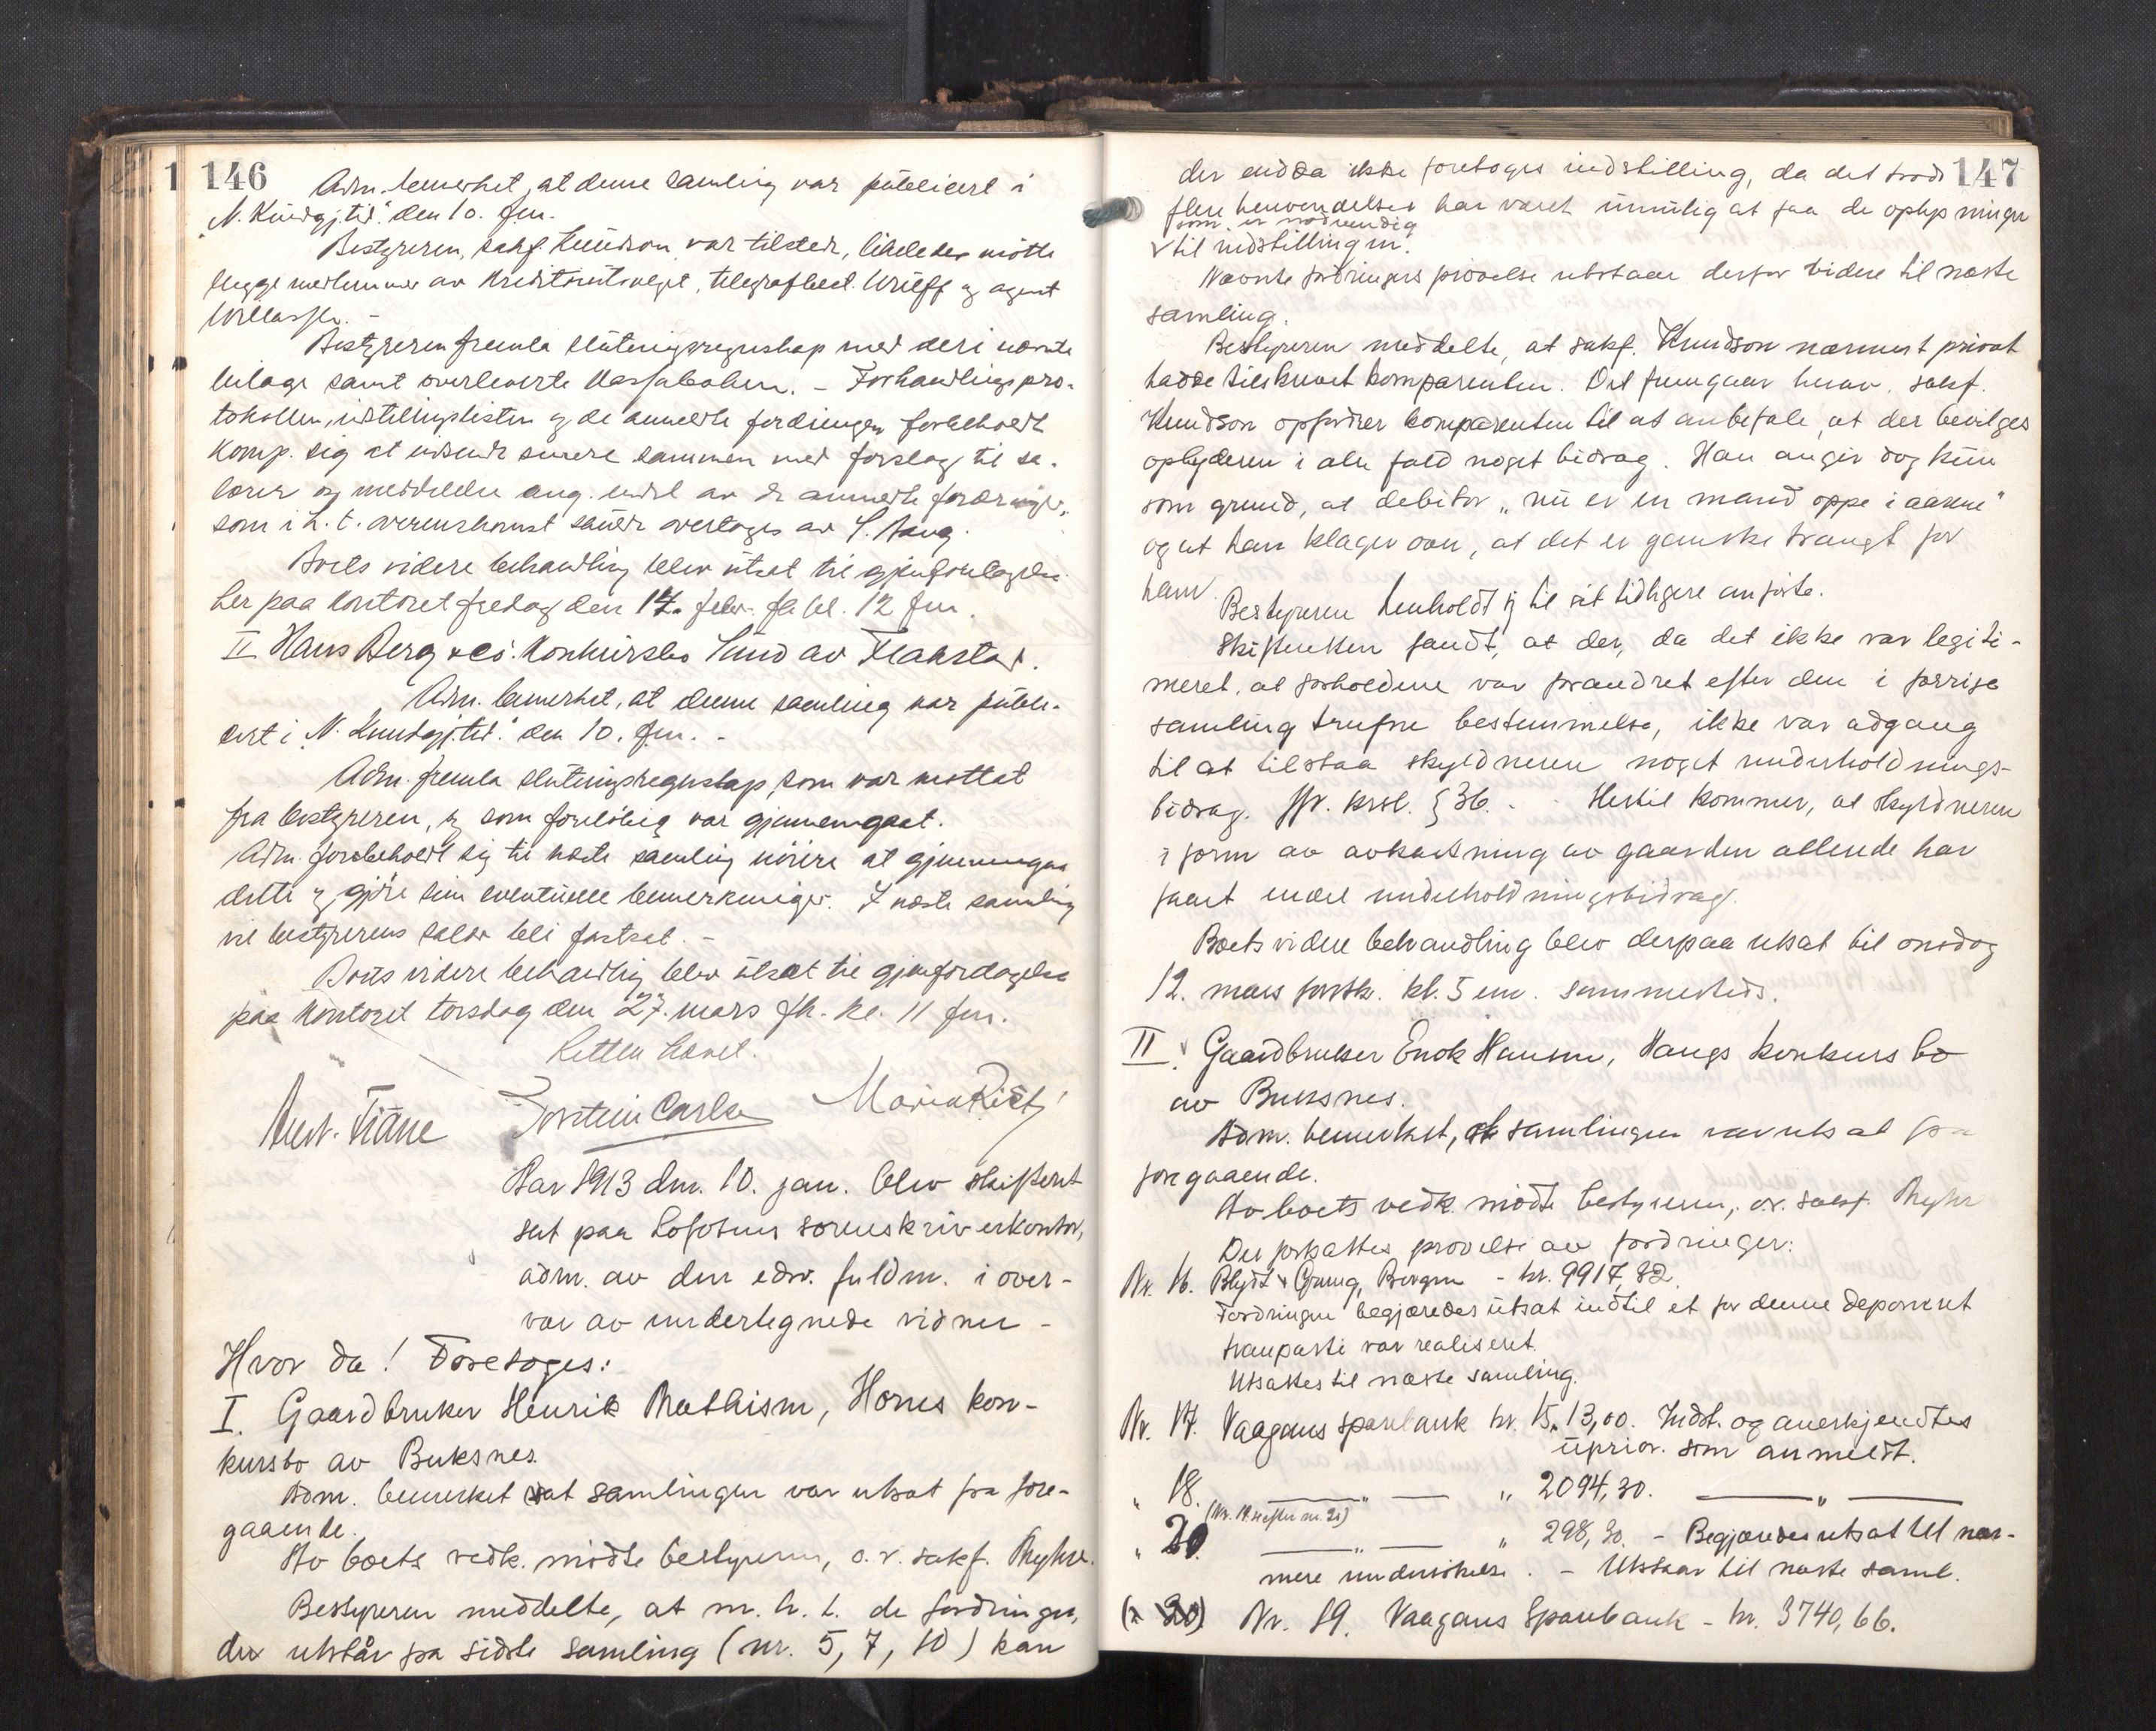 146
Adm. bemerket, at denne samling var publicert i
"N. Kundgj.tid." den 10. ds.
Bestyreren, sakf. Knudson var tilstede, likeledes mötte
begge medlemmer av Kreditorutvalget, telegrafbest. Wulff og agent
Willassen. -
Bestyreren fremla slutningsregnskap med deri nævnte
bilage samt overleverte Kassaboken. - Forhandlingspro-
tokollen, utstillingslisten og de anmeldte fordringer forbeholdt
Komp. sig at indsende senere sammen med forslag til sa-
lærer og meddelelse ang. endel av de anmeldte fordringer,
som i h. t. overenskomst skulde overtages av S. Aang.
Boets videre behandling blev utsat til gjenforetagelse
her paa kontoret fredag den 14. febr. fk kl. 12 fm.
II Hans Berg vec's Konkursbo Sund av Flakstad.
Adm. bemerket, at denne samling var publi-
cert i "N. Kundgj.tid." den 10. ds. -
Adm. fremla slutningsregnskap, som var mottat
fra bestyreren, og som foreløbig var gjennemgaat.
Adm. forbeholdt sig til næste samling nöiere at gjennemgaa
dette og gjöre sine eventuelle bemerkninger. I næste samling
vil bestyrerens salær bli fastsat. -
Boets videre behandling blev utsat til gjenforetagelse
paa kontoret torsdag den 27. mars fk. kl. 11 fm.
Retten hævet.
Torstein Carlse Maria Rist
Aar 1913 den 10. jan. blev skifteret
sat paa Lofotens sorenskriverkontor,
adm. av den edsv. fuldm. i over-
vær av undertegnede vidner -
Hvor da! Foretoges:
I. Gaardbruker Henrik Mathisen, Hornes kon-
kursbo av Buksnes.
Adm. bemerket at samlingen var utsat fra fore-
gaaende.
Av boets vedk. mödte bestyreren, o.r. sakf. Myhre.
Bestyreren meddelte, at m. h. t. de fordringer,
der utstår fra sidste samling (nr. 5, 7, 10) kan
147
der endda ikke foretages indstilling, da det trods
flere henvendelser har været umulig at faa de oplysninger
som er nödvendig
til indstillingen.
Nævnte fordringers prövelse utstaar derfor videre til næste
samling.
Bestyreren meddelte, at sakf. Knudson nærmest privat
hadde tilskrevet komparenten. Det fremgaar herav, sakf.
Knudson opfordrer komparenten til at anbefale, at der bevilges
opbyderen i alle fald noget bidrag. Han angir dog kun
som grund, at debitor "nu er en mand oppe i aarene"
og at han klager over, at det er ganske trangt for
ham.
Bestyreren henholdt sig til sit tidligere anförte.
Skifteretten fandt, at der, da det ikke var legiti-
meret, at forholdene var forandret efter den i forrige
samling trufne bestemmelse, ikke var adgang
til at tilstaa skyldneren noget underholdnings-
bidrag. Jfr. krsl. § 36. - Hertil kommer, at skyldneren
i form av avkastning av gaarden allerede har
faaet endel underholdningsbidrag.
Boets videre behandling blev derpaa utsat til onsdag
12. mars førstk. kl. 5 em. sammesteds.
II. Gaardbruker Enok Hansen, Haugs konkursbo
av Buksnes.
Adm. bemerket, at samlingen var utsat fra
foregaaende.
Av boets vedk. mödte bestyreren, o.r. sakf. Myhre
Der fortsattes prövelse av fordringer:
Nr. 16. Blydt & Grung, Bergen - kr. 9917,82.
Fordringen begjæredes utsat indtil et for denne deponeret
tranparti var realiseret.
Utsattes til næste samling.
Nr. 17. Vaagans sparebank kr. 1513,00. Indst. og anerkjendtes
uprior. som anmeldt.
" 18. — " — " 2094,30. — " —
(Nr. 19 se efter nr. 20)
" 20. — " — " 298,30. - Begjæredes utsat til nær-
mere undersökelse. - Utstaar til næste saml.
(20) Nr. 19. Vaagans Sparebank - kr. 3740,66.